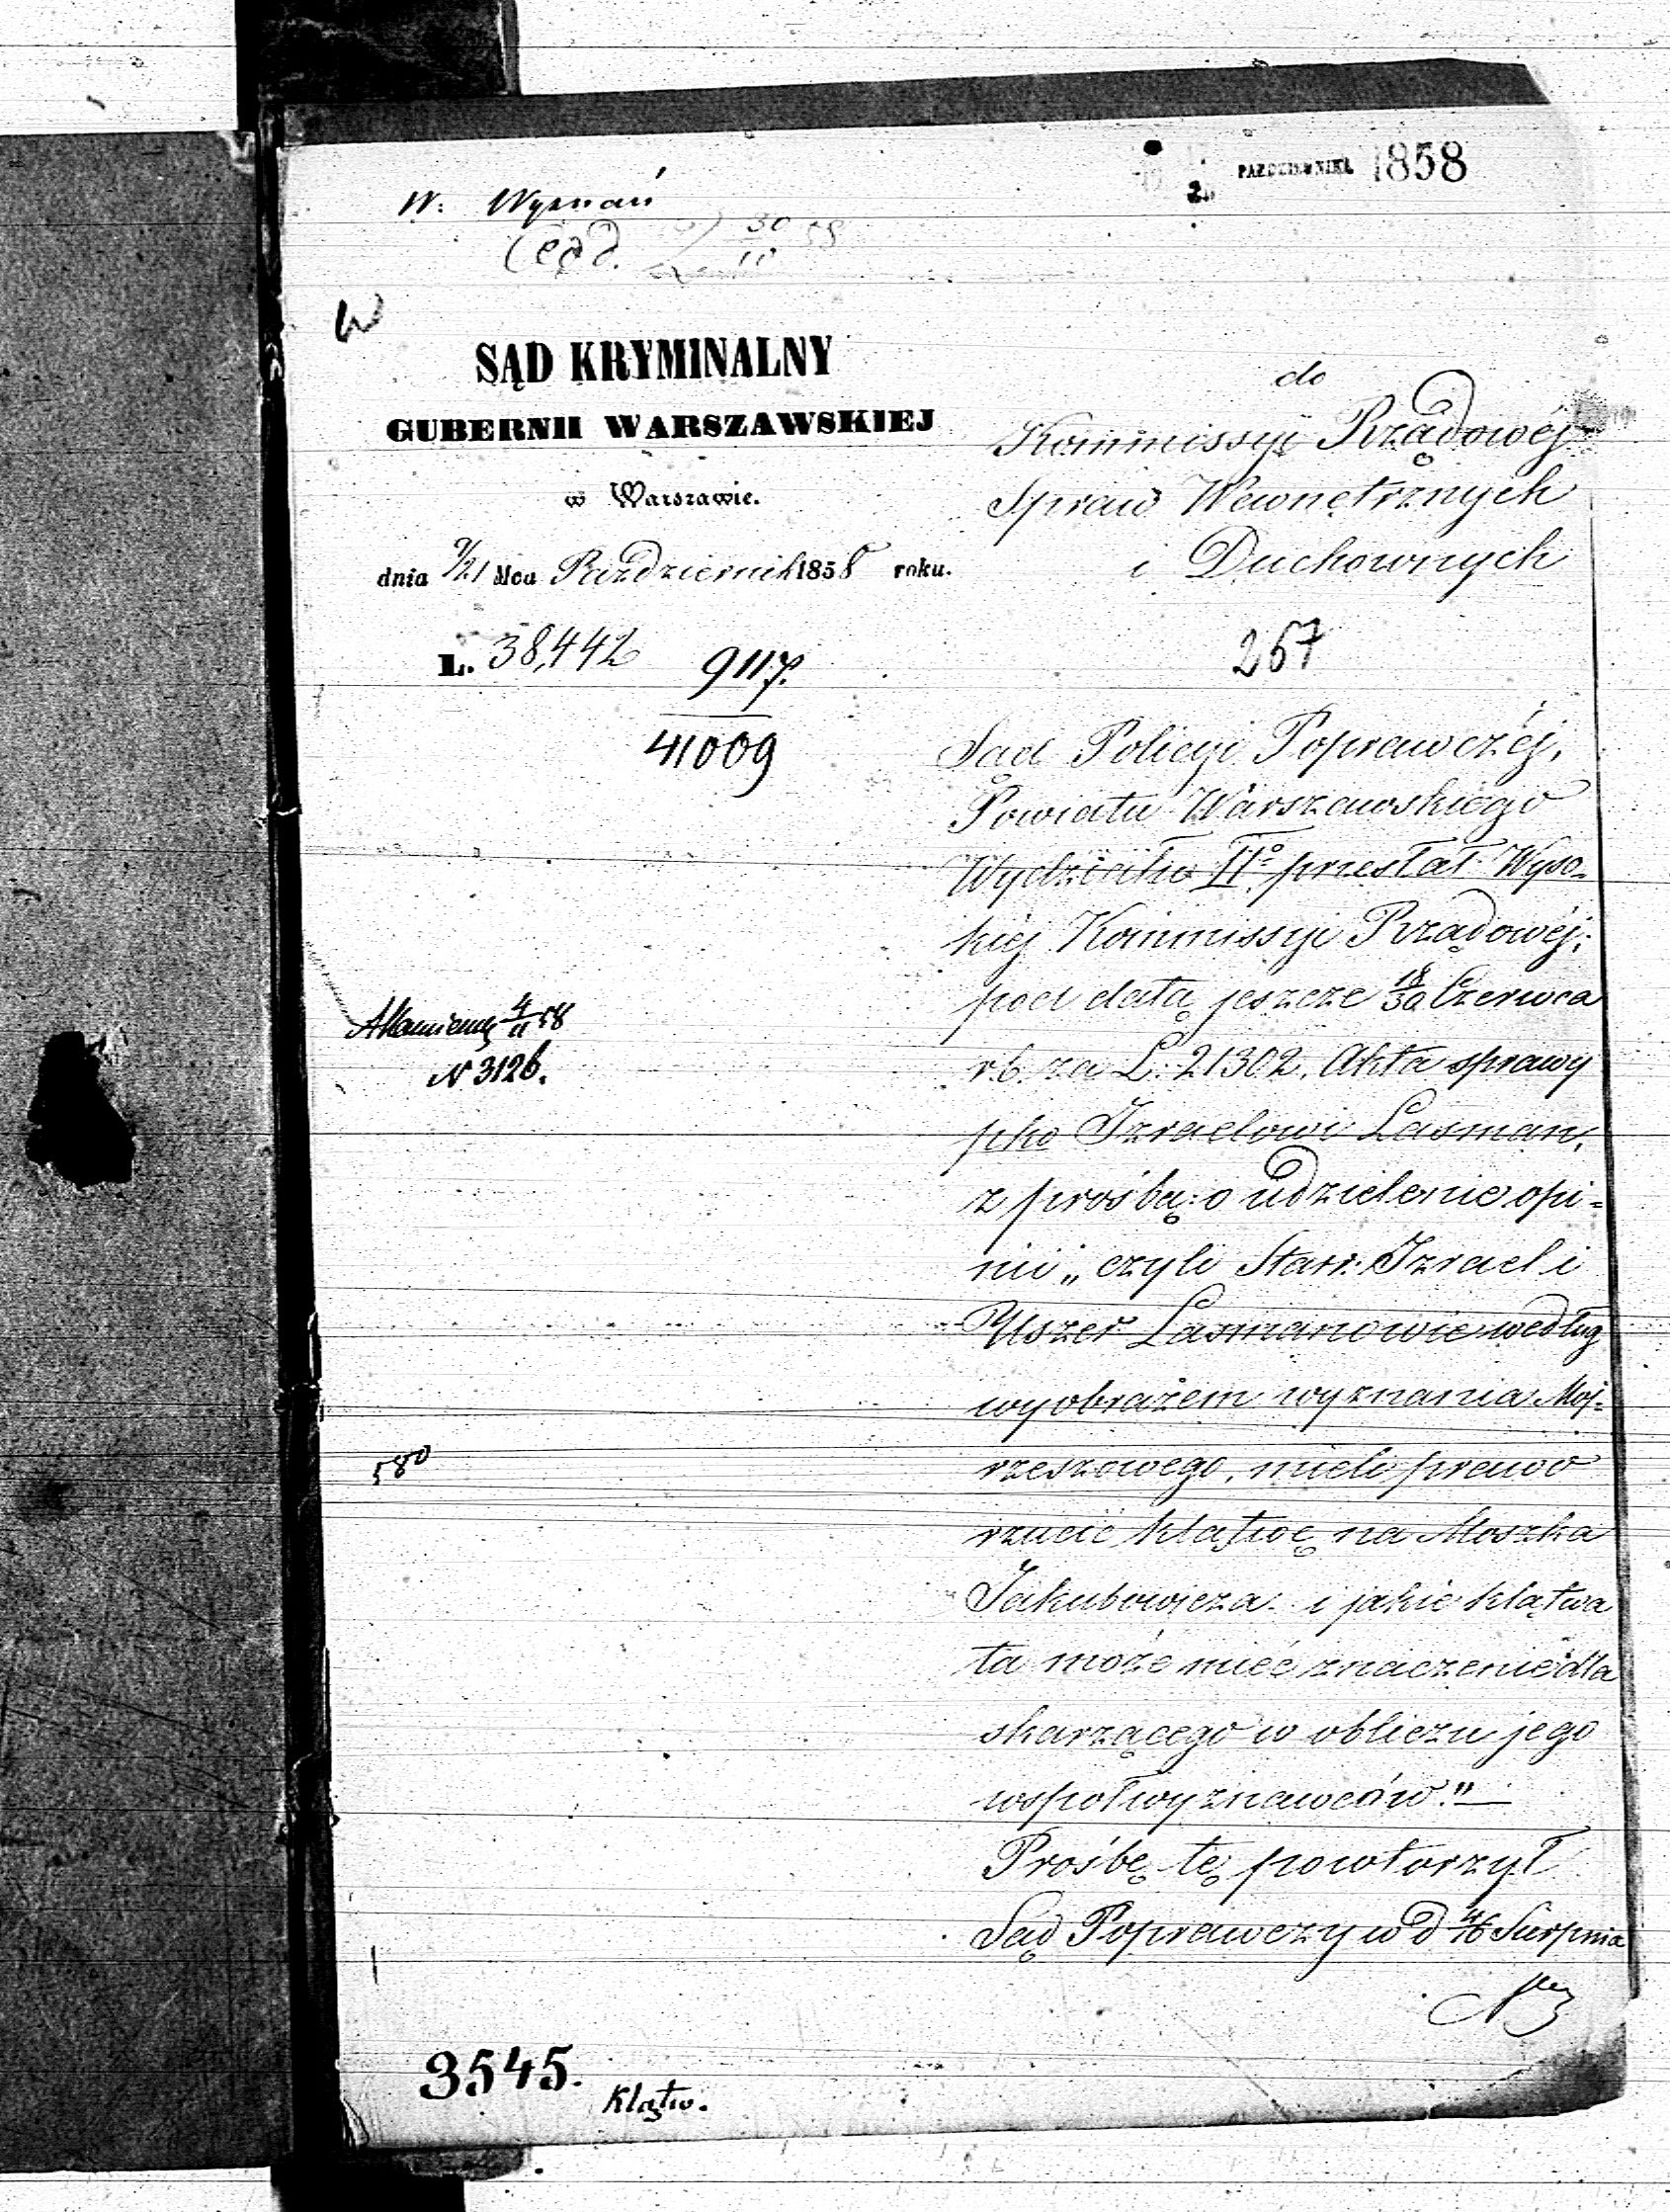 PAŹDZIERNIKA 1858
W. Wyznań
30
10 58
W
SĄD KRYMINALNY
GUBERNII WARSZAWSKIEJ
w Warszawie.
dnia 9/21 Mca Październik 1858 roku.
L. 38,442
9117.
41009
do
Kommissyi Rządowéj
Spraw Wewnętrznych
i Duchownych
267
Sąd Policyi Poprawczéj,
Powiatu Warszawskiego
Wydziału IIº przesłał Wyso-
kiej Kommissyi Rządowéj,
pod datą jeszcze 18/30 Czerwca
r.b. za L. 21302. Akta sprawy
pko Izraelowi Lasman,
z prośbą: o udzielenie opi-
nii „czyli Starz. Izrael i
Uszer Lasmanowie według
wyobrażeń wyznania Moj-
rzeszowego, mieli prawo
rzucić klątwę na Moszka
Jakubowicza i jakie klątwa
ta może mieć znaczenie dla
skarzącego w obliczu jego
współwyznawców."—
Prośbę tę powtorzył
Sąd Poprawczy w d 4/16 Sierpnia
4/11 58
N 3126.
580
3545.
Klątw.